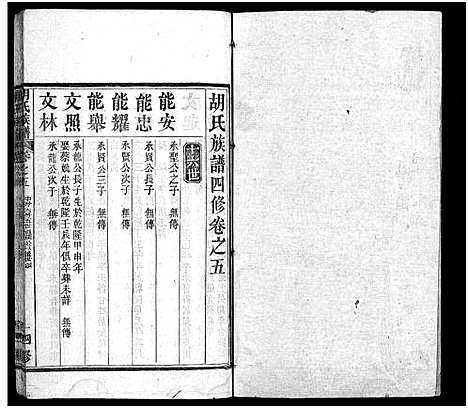 胡氏族譜四修卷之五
十六世
能安 承聖公之子 無傳
能忠 承貢公長子 無傳
能耀 承賢公次子 無傳
能舉 承賢公三子 無傳
文照 承龍公長子生於乾隆甲申年
娶蔡氏生於乾隆壬辰年俱卒葬未詳 無傳
文林 承龍公次子 無傳
胡氏族譜 卷之五
四修